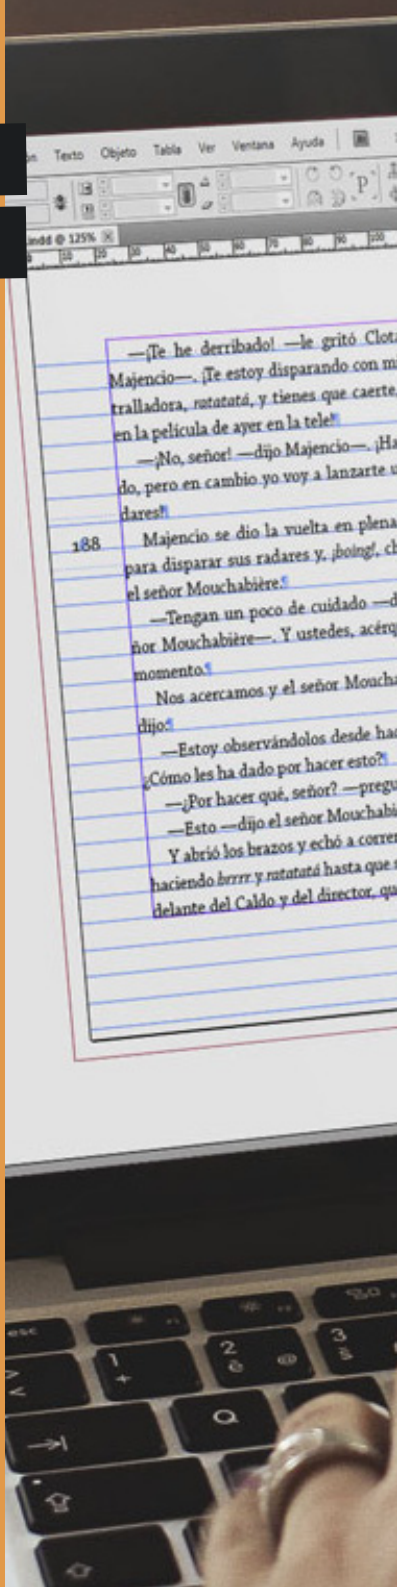 Texto Objeto Tabla Ver Ventana Ayuda
P
indd @ 125%
10 20 30 40 50 60 70 80 90 100
—¡Te he derribado! —le gritó Clota
Majencio—. ¡Te estoy disparando con m
tralladora, ratatatá, y tienes que caerte,
en la película de ayer en la tele!
—¡No, señor! —dijo Majencio—. ¡Ha
do, pero en cambio yo voy a lanzarte u
dares!
188
Majencio se dio la vuelta en plena
para disparar sus radares y, ¡boing!, ch
el señor Mouchabière.
—Tengan un poco de cuidado —d
ñor Mouchabière—. Y ustedes, acérq
momento.
Nos acercamos y el señor Moucha
dijo:
—Estoy observándolos desde hac
¿Cómo les ha dado por hacer esto?
—¿Por hacer qué, señor? —pregu
—Esto —dijo el señor Mouchabi
Y abrió los brazos y echó a correr
haciendo brrrr y ratatatá hasta que s
delante del Caldo y del director, qu
esc
1 2 3
+ @
> <
Q